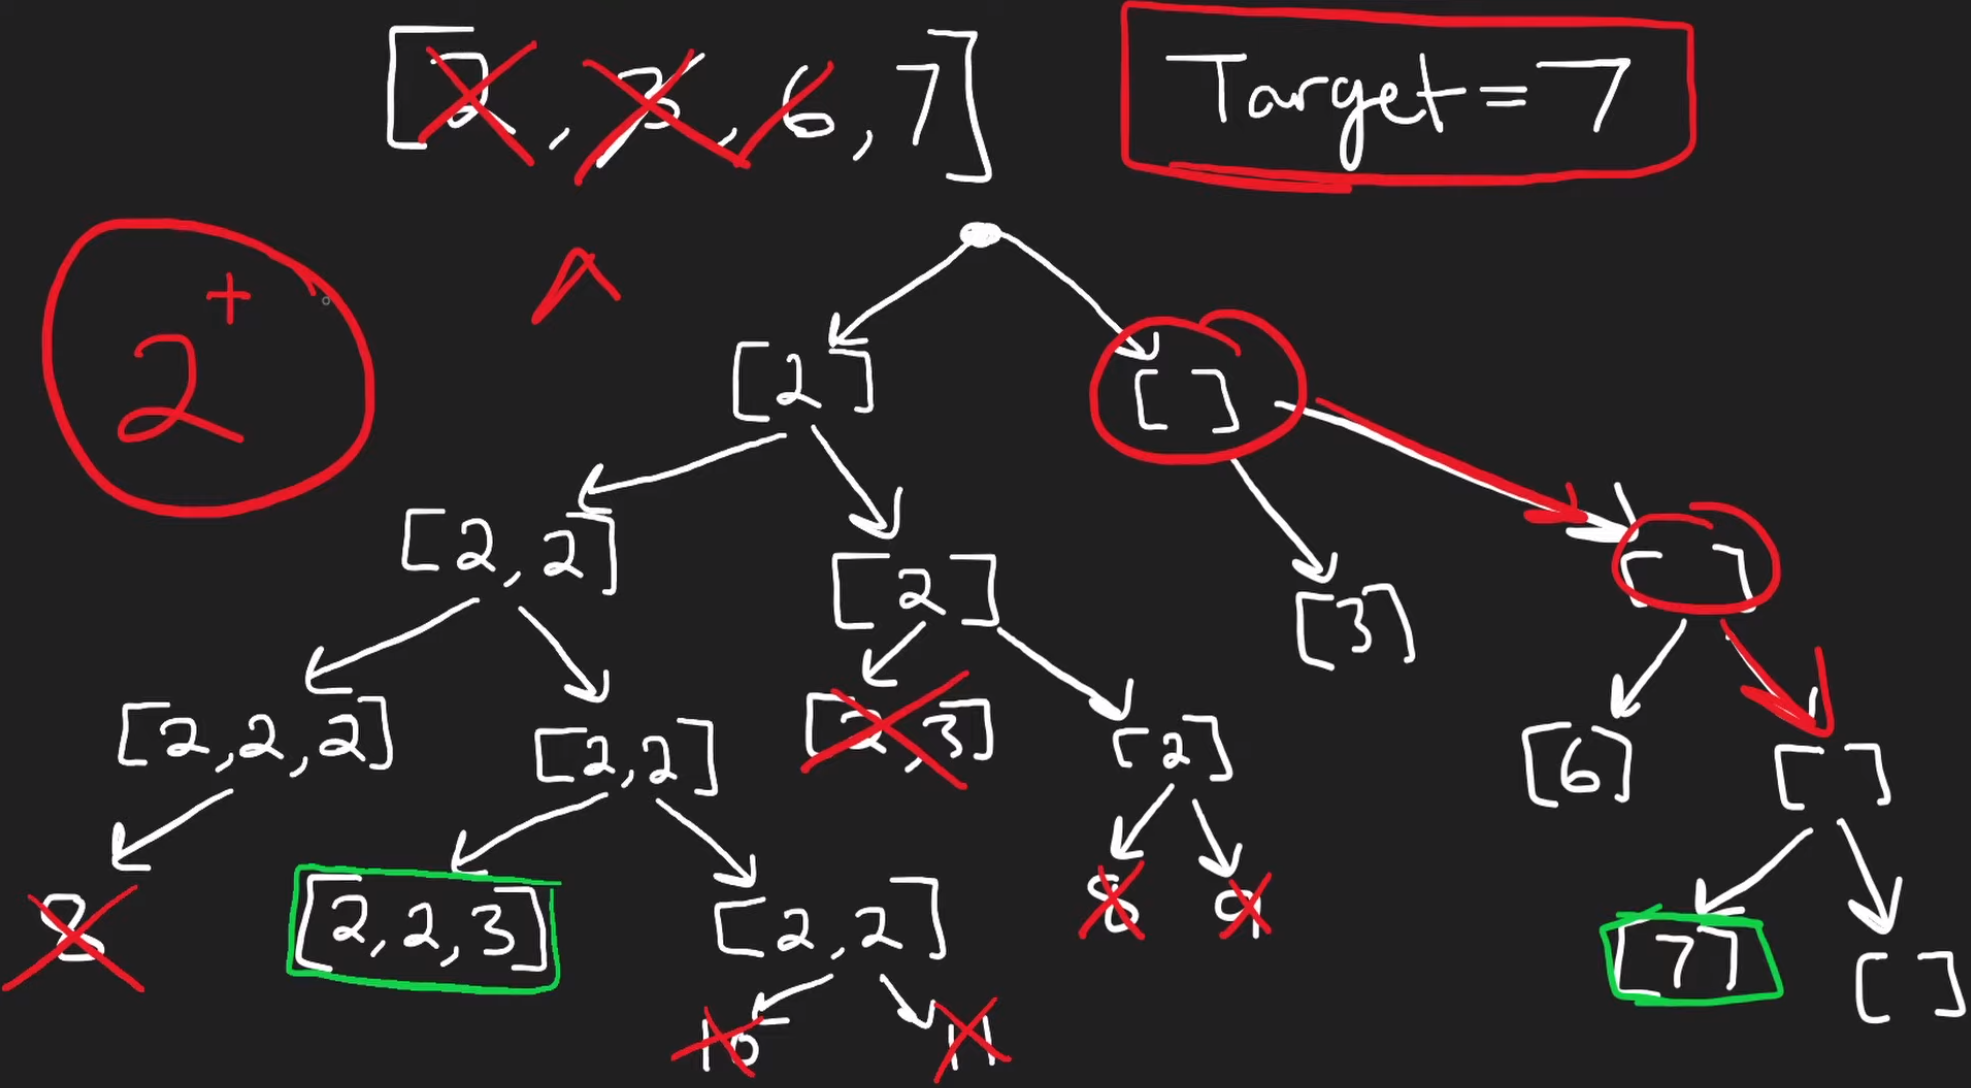 [2, 3, 6, 7]
Target = 7
2+
[2] []
[2, 2] [2] [3] []
[2, 2, 2] [2, 2] [2, 3] [2] [6] []
8 [2, 2, 3] [2, 2] 8 9 [7] []
10 11